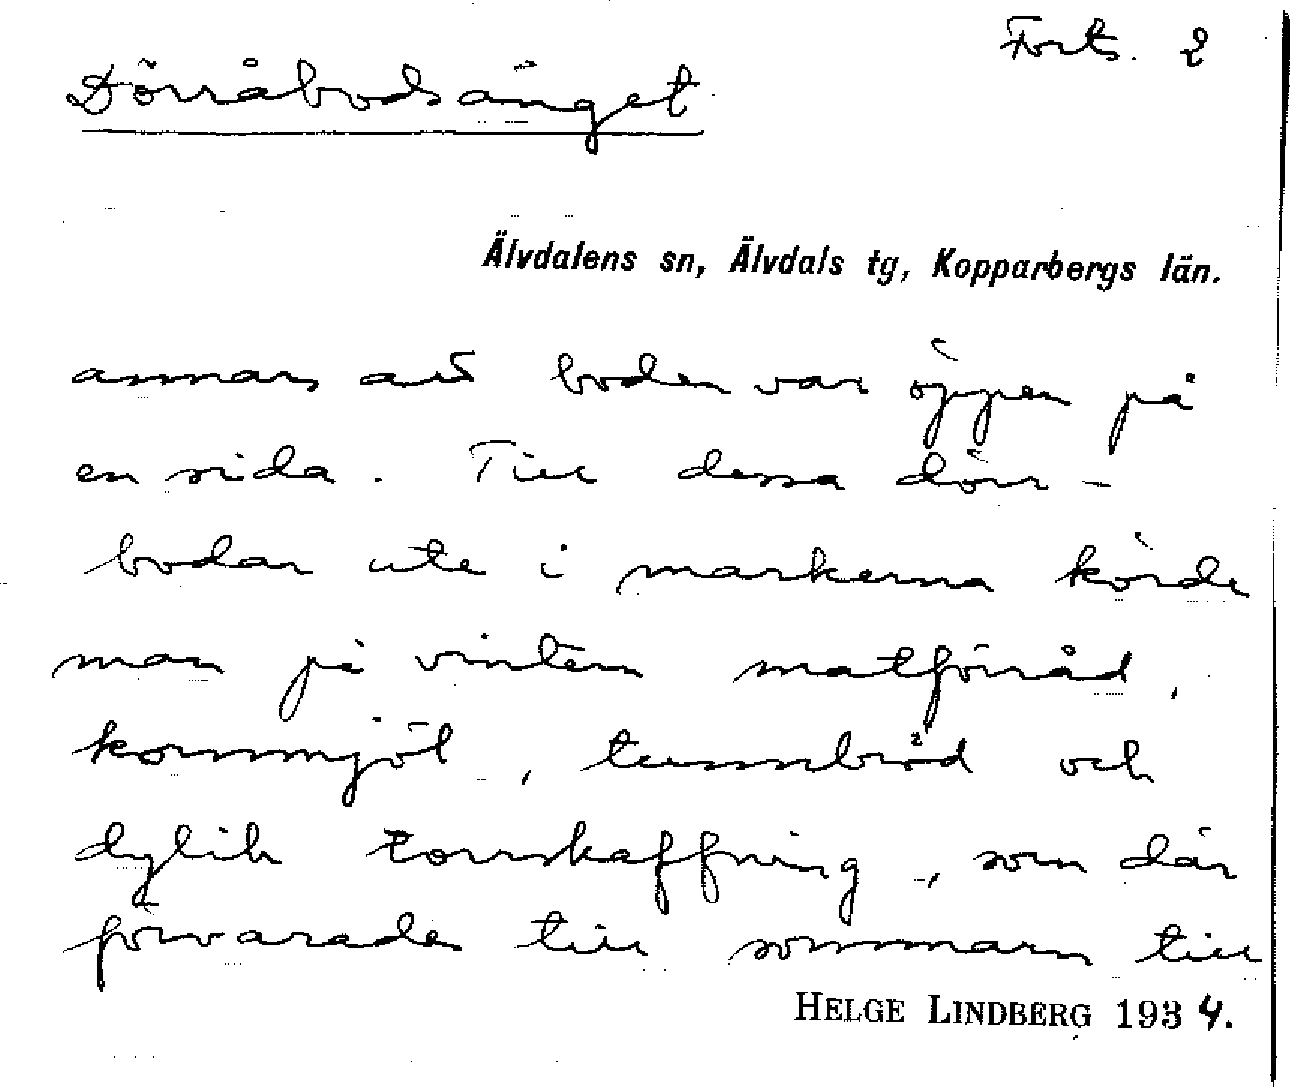 Forts. 2
Dörråbodsänget
Älvdalens sn, Älvdals tg, Kopparbergs län.
annars att boden var öppen på
en sida. Till dessa dörr-
bodar ute i markerna körde
man på vintern matförråd,
kornmjöl, tunnbröd och
dylik torrskaffning, som där
förvarades till sommarn till
HELGE LINDBERG 1934.